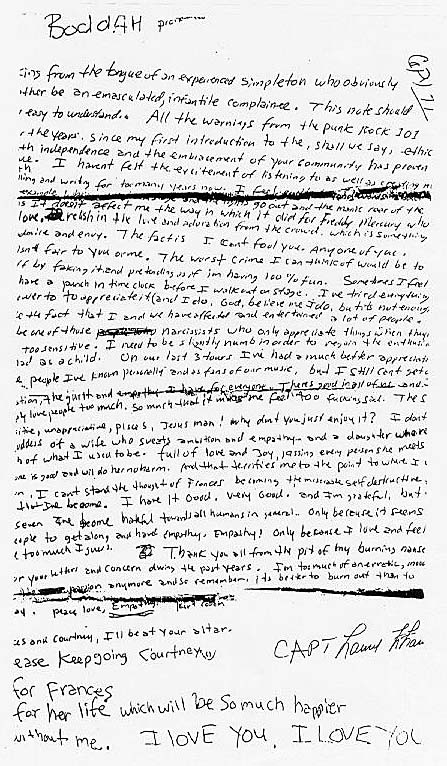 BoddAH
ing from the tongue of an experienced simpleton who obviously
ther be an emasculated, infantile complainee. This note should
easy to understand. All the warnings from the punk rock 101
the years. Since my first introduction to the, shall we say, ethic
th independence and the embracement of your community has proven
ue. I havent felt the excitement of listening to as well as creating mu
and writing for too many years now. I feel
go out and the manic roar of the
it doesnt affect me the way in which it did for Freddy Mercury who
love, relish in the love and adoration from the crowd. which is something
admire and envy. The fact is I Cant fool you. Any one of you.
isnt fair to you or me. The worst Crime I can think of would be to
ff by faking it and pretending as if im having 100% fun. Sometimes I feel
have a punch in time clock before I walk out on stage. I've tried everything
ower to appreciate it (and I do, God, believe me I do, but its not enough
the fact that I and we have affected and entertained a lot of people.
be one of those narcissists who only appreciate things when they
too sensitive. I need to be slightly numb in order to regain the enthusia
had as a child. On our last 3 tours I've had a much better appreciati
people I've known personally and as fans of our music, but I still cant get
the guilt and empathy I have for everyone. Theres good in all of us and
ply love people too much. So much that it makes me feel too fucking sad. The s
itive, unappreciative, pisces, Jesus man! why dont you just enjoy it? I dont
oddess of a wife who sweats ambition and empathy. and a daughter who re
h of what I used to be. full of love and Joy, kissing every person she meets
one is good and will do her no harm. And that terrifies me to the point to where I c
n. I cant stand the thought of Frances becoming the miserable self destructive,
that Ive become. I have it Good. Very Good. and Im grateful, but
seven Ive become hateful towards all humans in general. Only because it seems
eople to get along and have empathy. Empathy! Only because I love and feel
e too much I guess. Thank you all from the pit of my burning nause
or your letters and concern during the past years. I'm too much of an erratic, moo
passion anymore and so remember, its better to burn out than to
ay. peace love, Empathy. Kurt Cobain
es and Courtney, I'll be at your altar.
ease Keep going Courtney,
CAPT
for Frances
for her life which will be so much happier
without me. I LOVE YOU. I LOVE YOU